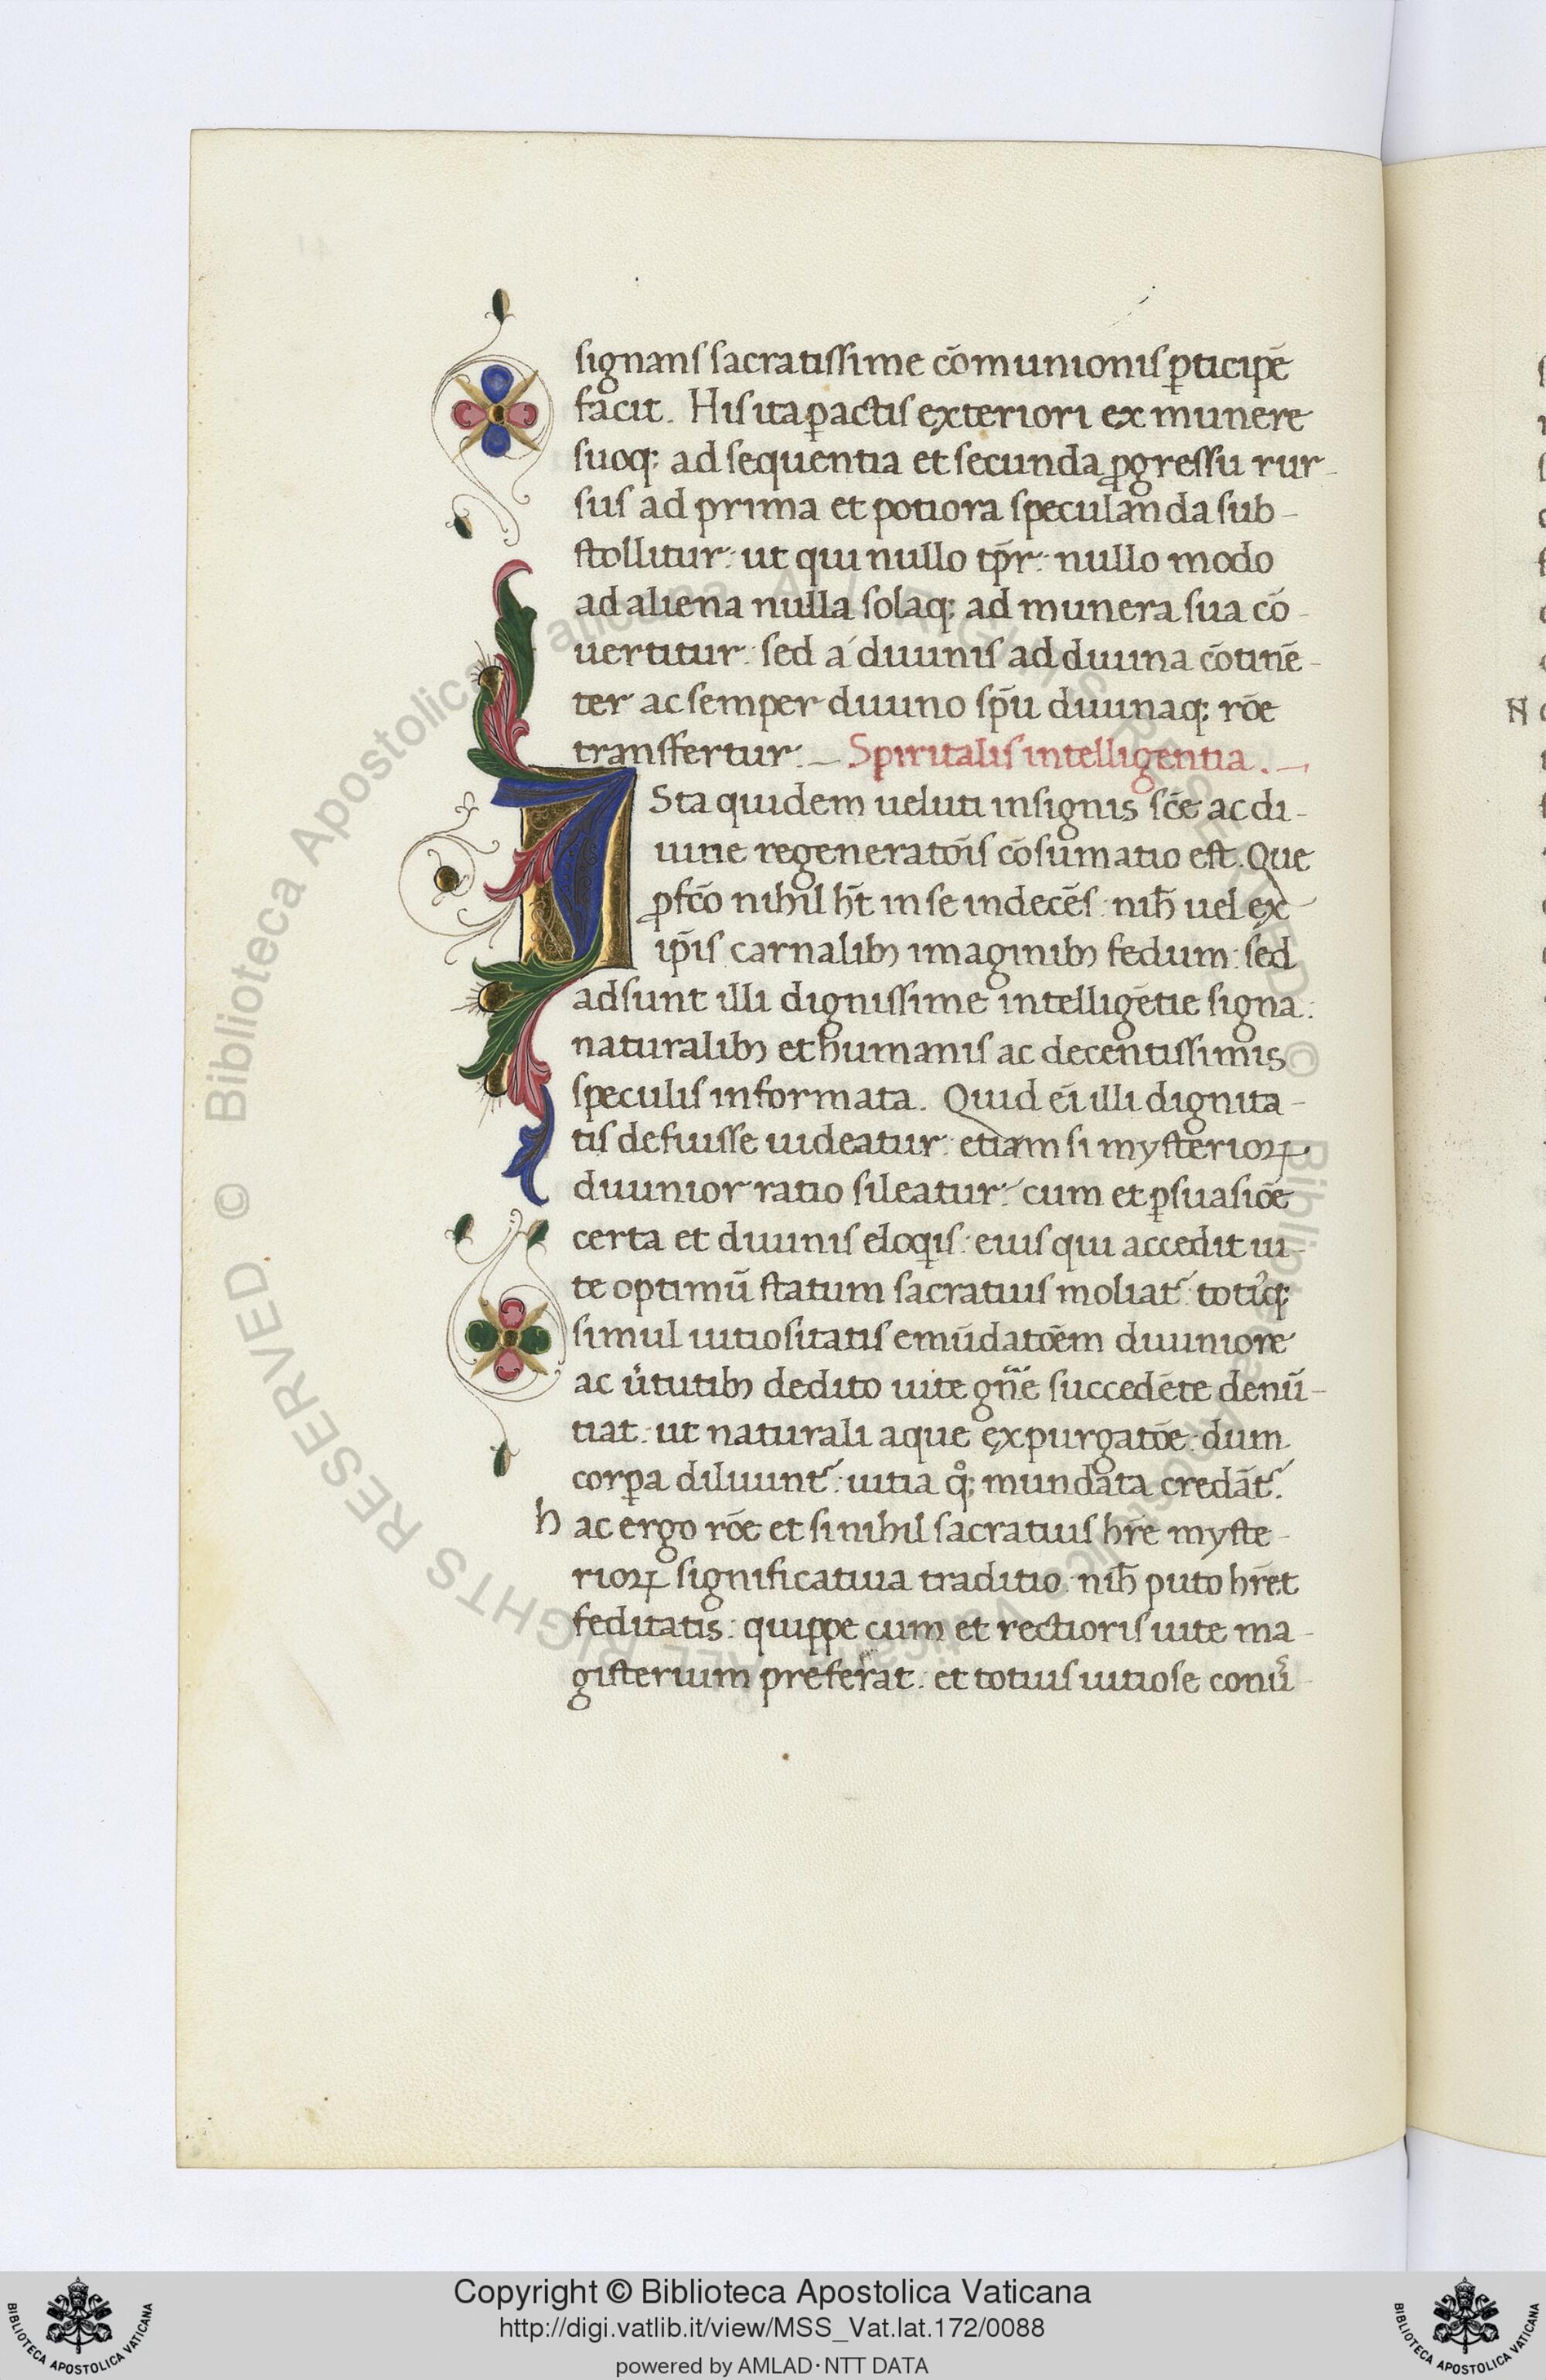 signans sacratissime cōmunionis ꝑticipē
facit. His ita ꝑactis exteriori ex munere
suoq; ad sequentia et secunda ꝓgressu rur-
sus ad prima et potiora speculanda sub-
stollitur: ut qui nullo tp̄r: nullo modo
ad aliena nulla solaq; ad munera sua cō-
uertitur: sed a diuinis ad diuina cōtinē-
ter ac semper diuino sp̄u diuinaq; rōe
transfertur:— Spiritalis intelligentia.—
ISta quidem ueluti insignis sc̄e ac di-
uine regeneratōis cōsumatio est. Que
ꝓfc̄o nihil h̄t in se indecēs: nih̄ uel ex
ip̄is carnalibꝫ imaginibꝫ fedum: sed
adsunt illi dignissime intelligētie signa:
naturalibꝫ et humanis ac decentissimis
speculis informata. Quid ēi illi dignita-
tis defuisse uideatur: etiam si mysterioꝝ
diuinior ratio sileatur: cum et ꝑsuasiōe
certa et diuinis eloqis: eius qui accedit ui-
te optimū statum sacratius moliat᷑: totiq;
simul uitiositatis emūdatōem diuiniore
ac u̇tutibꝫ dedito uite gn̄e succedēte denū-
tiat: ut naturali aque expurgatōe: dum
corꝑa diluunt᷑: uitia qͦ; mundata credāt᷑.
hac ergo rōe et si nihil sacratius hr̄e myste-
rioꝝ significatiua traditio: nih̄ puto hr̄et
feditatis: quippe cum et rectioris uite ma-
gisterium preferat: et totius uitiose conu̇-
N
Copyright © Biblioteca Apostolica Vaticana
http://digi.vatlib.it/view/MSS_Vat.lat.172/0088
powered by AMLAD·NTT DATA
BIBLIOTECA APOSTOLICA VATICANA
BIBLIOTECA APOSTOLICA VATICANA
© Biblioteca Apostolica Vaticana ALL RIGHTS RESERVED